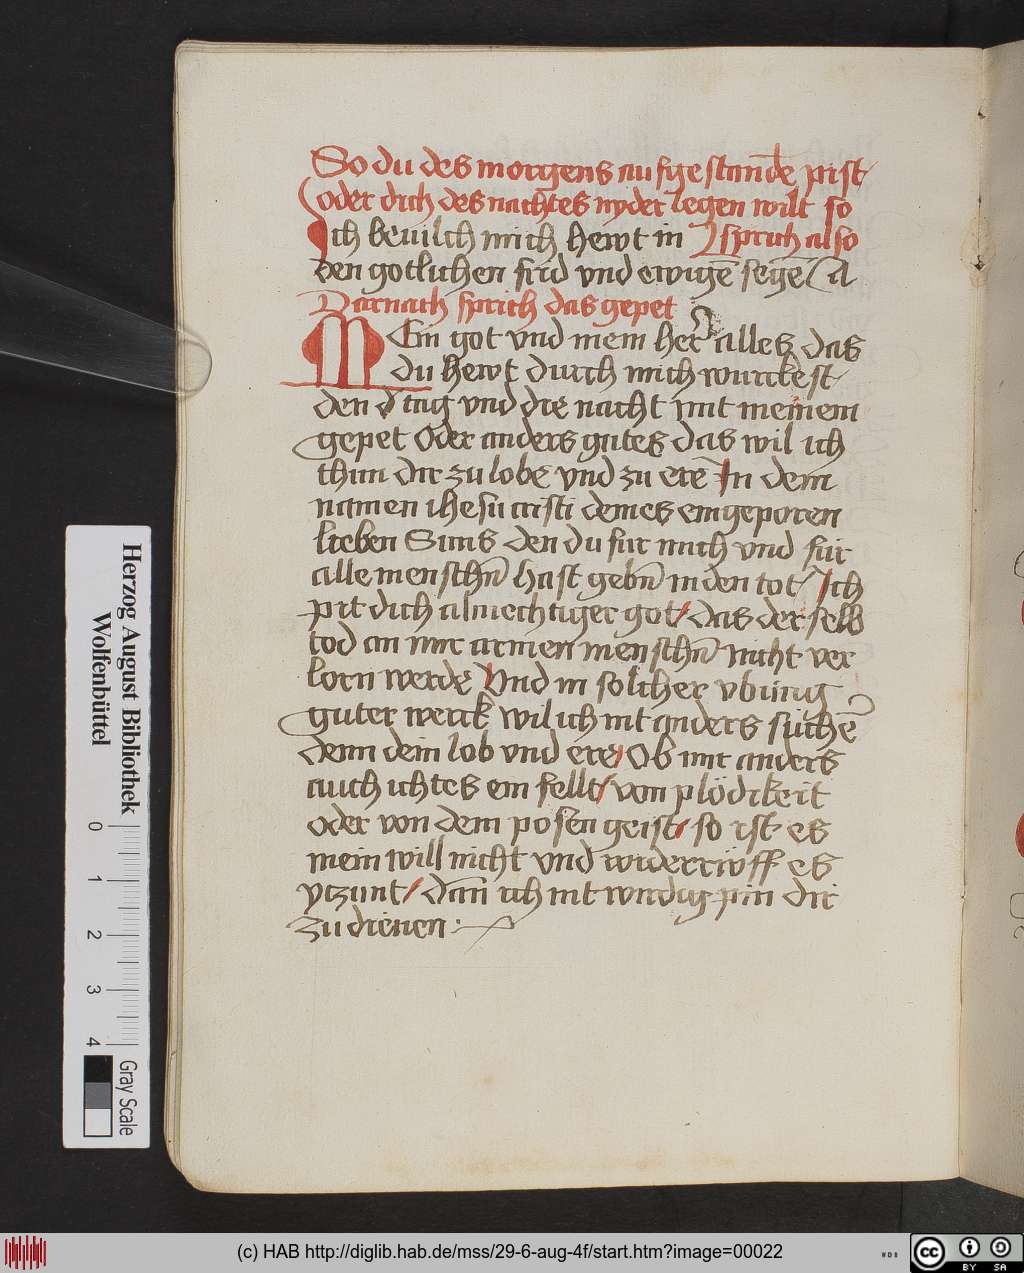 So du des morgens aufgestannde pist
oder dich des nachtes nyder legen wilt so
Ich bevilch mich hewt in sprich also
den gotlichen frid vnd ewigē segē A
Darnach sprich das gepet
MEin got vnd mein her alles das
du hewt durch mich wurckest
den tag vnd die nacht mit meinem
gepet Oder anders gutes das wil ich
thun dir zu lobe vnd zu erē In dem
namen ihesu cristi deines eingeporen
lieben Suns den du fur mich vnd für
alle menschn̄ hast gebn̄ in den tot Ich
pit dich almechtiger got/ das der selb
tod an mir armen menschn̄ nicht ver
lorn werde Vnd in solcher vbung
guter werck wil ich nit anders suchē
denn dein lob vnd ere/ Ob mir anders
auch ichtes ein fellt/ von plödikeit
oder von dem posen geist/ so ist es
mein will nicht vnd widerrüff es
yczunt/ dan̄ ich nit wirdig pin dir
zu dienen
Herzog August Bibliothek
Wolfenbüttel
0 1 2 3 4
Gray Scale
(c) HAB http://diglib.hab.de/mss/29-6-aug-4f/start.htm?image=00022
WDB
cc BY SA